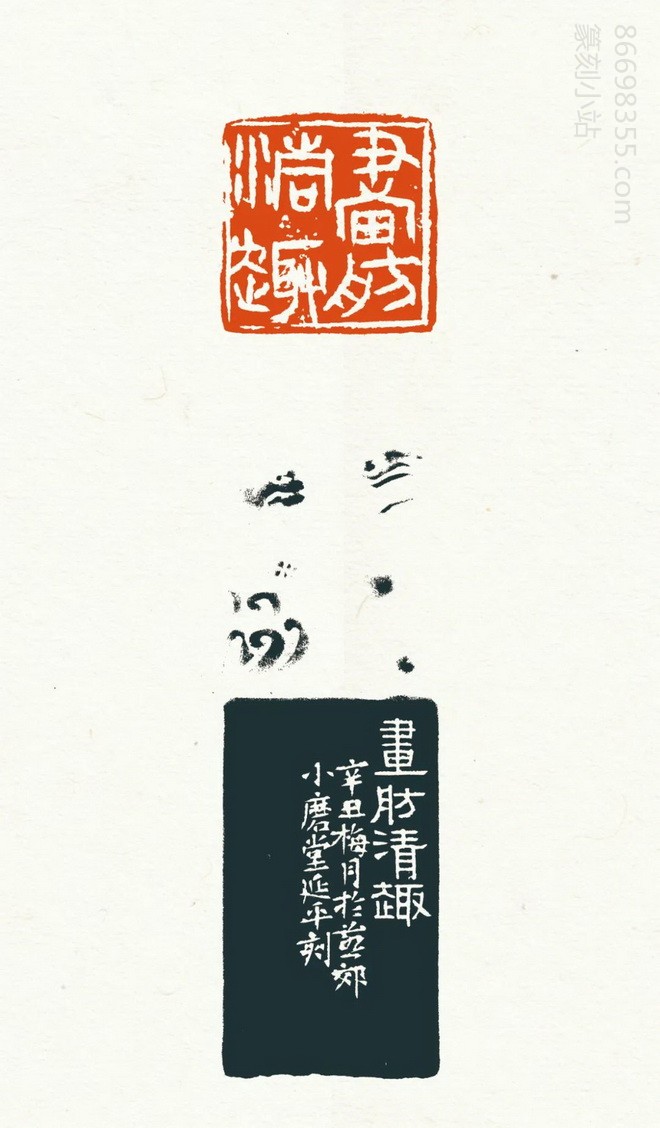 86698355.com
篆刻小站
畫舫
清趣
畫舫清趣
辛丑梅月於燕郊
小磨堂延平刻